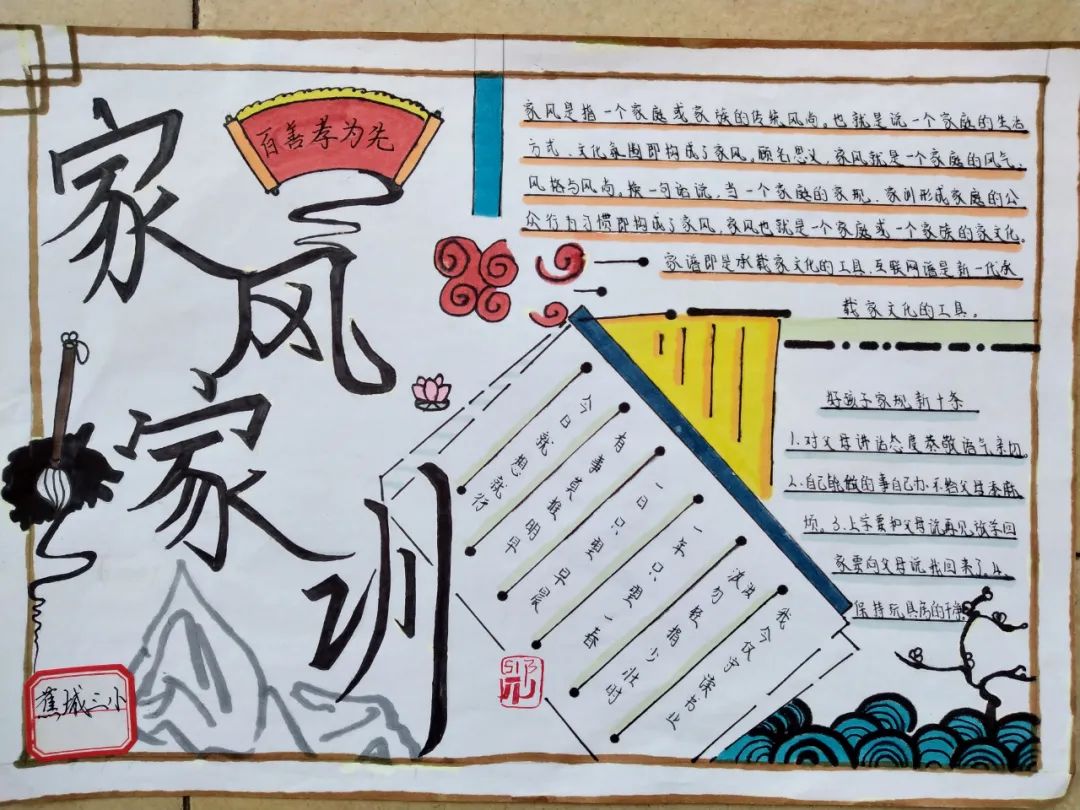 家风家训
百善孝为先
家风是指一个家庭或家族的传统风尚。也就是说一个家庭的生活
方式、文化氛围即构成了家风。顾名思义,家风就是一个家庭的风气、
风格与风尚。换一句话说,当一个家庭的家规、家训形成家庭的公
众行为习惯即构成了家风,家风也就是一个家庭或一个家族的家文化。
家谱即是承载家文化的工具,互联网谱是新一代承
载家文化的工具。
好孩子家规新十条
1.对父母讲话态度恭敬语气亲切。
2.自己能做的事自己办不给父母添麻
烦。3.上学要和父母说再见放学回
家要向父母说我回来了。4.
保持玩具房的干净
我今仅守读书业
汝勿轻捐少壮时
一年只望一春
一日只望早晨
有事莫推明早
今日就想就行
蕉城三小